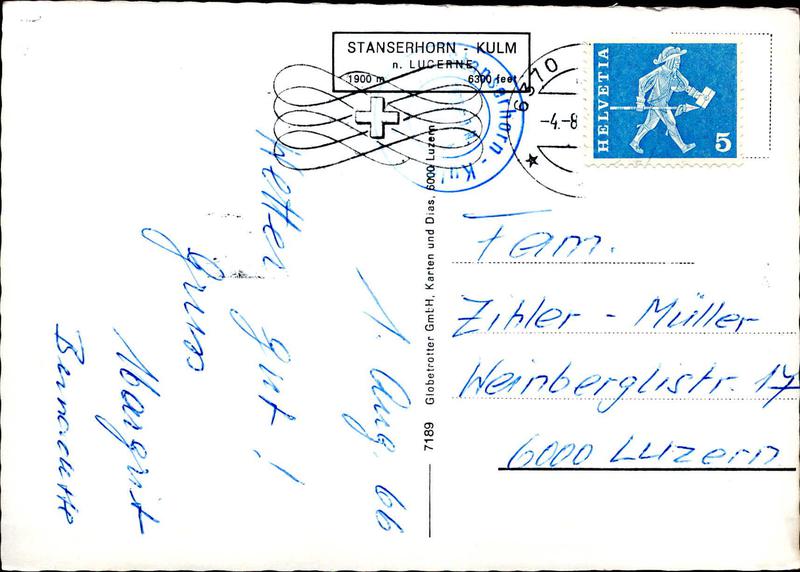 STANSERHORN - KULM
n. LUCERNE
1900 m 6300 feet
Stanserhorn - Kulm
6370
-4.-8
HELVETIA
5
1. Aug. 66
Wetter gut!
Gruss
Margrit
Bernadette
7189 Globetrotter GmbH, Karten und Dias, 6000 Luzern
Fam.
Zihler - Müller
Weinberglistr. 17
6000 Luzern